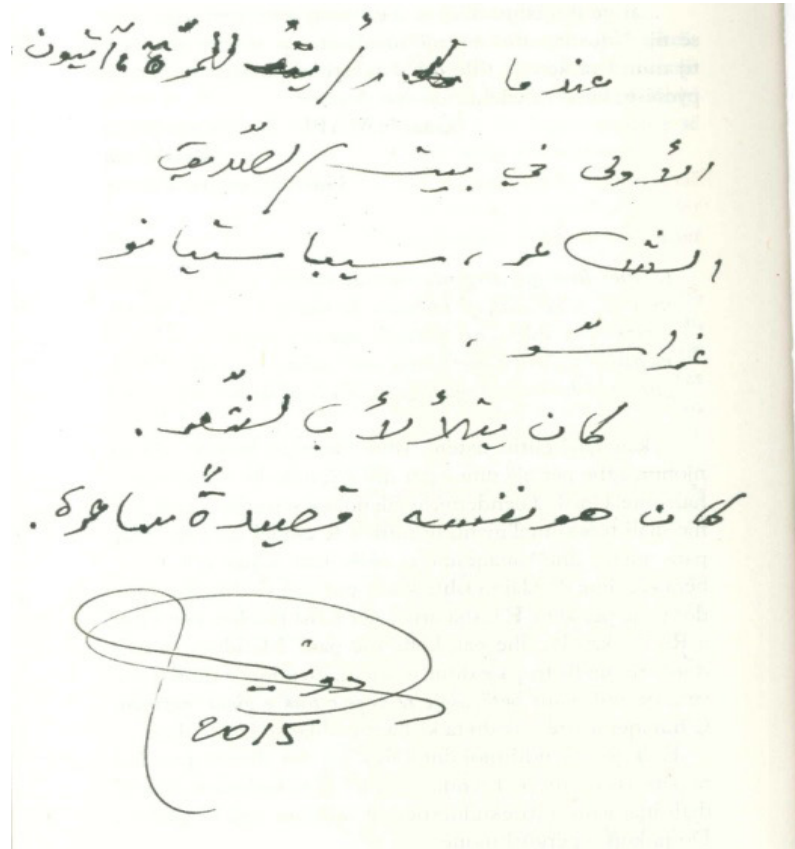 عندما رأيتُ للمرّة
الأولى في بيت الصّديق
الشاعر، سيباستيانو
غراسّو،
كان يتلألأ بالشّعر.
كان هو نفسه قصيدةً ساحرة.
أدونيس
2015